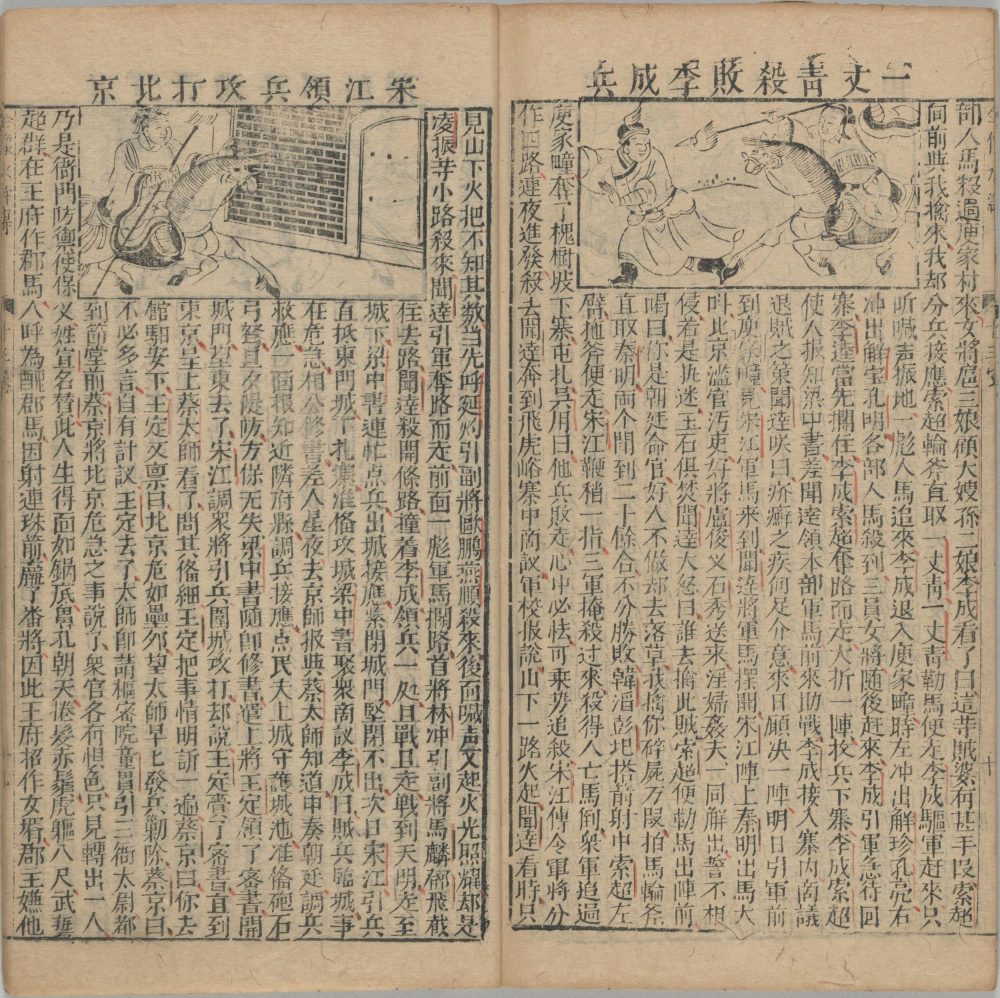 一丈青殺敗李成兵
部人馬殺過庾家村來女將扈三娘顧大嫂孫二娘李成看了曰這等賊婆有甚手段索超
向前與我擒來我却分兵接應索超輪斧直取一丈青一丈青勒馬便走李成驅軍赶來只
听喊声振地一彪人馬追來李成退入庾家疃時左冲出解珍孔亮右
冲出解宝孔明各部人馬殺到三員女將随後赶來李成引軍急待回
寨李逵當先攔住李成索超奪路而走大折一陣投兵下寨李成索超
使人报知梁中書差聞達領本部軍馬前來助戰李成接入寨內商議
退賊之策聞達咲曰疥癬之疾何足介意來日願决一陣明日引軍前
到庾家疃見宋江軍馬来到聞達將軍馬擺開宋江陣上秦明出馬大
呼北京濫官污吏好將盧俊义石秀送来淫婦姦夫一同解出誓不相
侵若是执迷玉石俱焚聞達大怒曰誰去擒此賊索超便勒馬出陣前
喝曰你是朝廷命官好人不做却去落草我擒你碎屍万叚拍馬輪斧
直取秦明両个閗到二十餘合不分勝敗韓滔彭玘搭箭射中索超左
臂拖斧便走宋江鞭稍一指三軍掩殺过來殺得人亡馬倒衆軍追過
庾家疃奪了槐樹坡下寨屯扎吳用曰他兵敗走心中必怯可乗势追殺宋江傳令軍將分
作四路連夜進發殺去聞達奔到飛虎峪寨中商议軍校报說山下一路火起聞達看時只
宋江領兵攻打北京
見山下火把不知其数當先呼延灼引副將歐鵬燕順殺來後面喊声又起火光照耀却是
凌振等小路殺來聞達引軍奪路而走前面一彪軍馬攔路首將林冲引副將馬麟邓飛截
住去路聞達殺開條路撞着李成領兵一処且戰且走戰到天明走至
城下梁中書連忙点兵出城接應緊閉城門堅閉不出次日宋江引兵
直抵東門城下扎寨准俻攻城梁中書聚衆商议李成曰賊兵臨城事
在危急相公修書差人星夜去京師报與蔡太師知道申奏朝廷調兵
救應一面报知近隣府縣調兵接應点民夫上城守護城池准俻砲石
弓弩旦夕隄防方保无失梁中書随即修書遣上將王定領了密書開
城門望東去了宋江調衆將引兵圍城攻打却說王定賫了密書直到
東京呈上蔡太師看了問其俻細王定把事情明訴一遍蔡京曰你去
舘驛安下王定又禀曰北京危如壘卵望太師早七發兵勦除蔡京曰
不必多言自有計议王定去了太師即請樞密院童貫引三衙太尉都
到節堂前蔡京將北京危急之事說了衆官各有惧色只見轉出一人
乃是衙門防禦使保义姓宣名替此人生得面如鍋底鼻孔朝天捲髮赤鬚虎軀八尺武藝
超群在王府作郡馬人呼為醜郡馬因射連珠箭嬴了番將因此王府招作女婿郡王嫌他